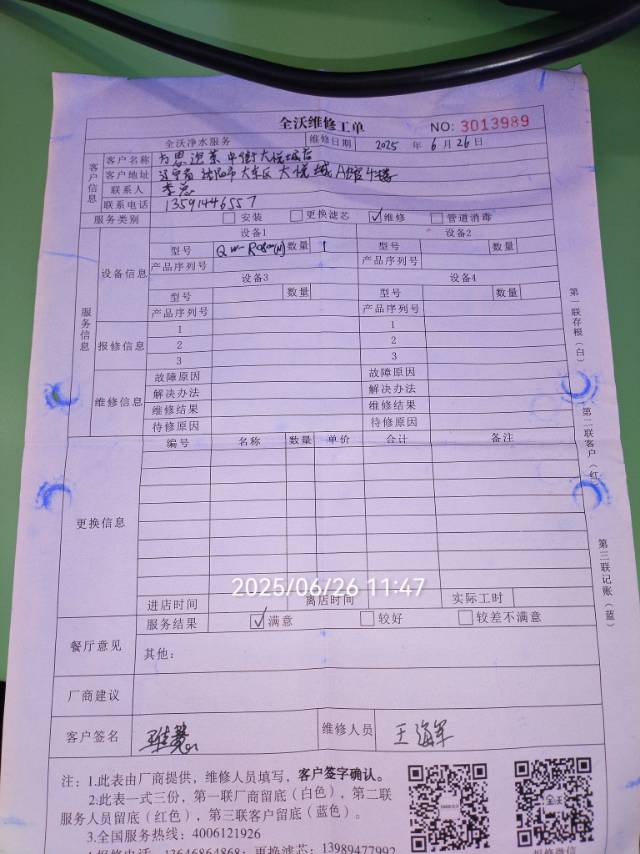 全沃维修工单
NO: 3013989
全沃净水服务 维修日期 2025 年 6 月 26 日
客户信息
客户名称 中街大悦城店
客户地址 辽宁省沈阳市大东区大悦城A馆4楼
联系人 李总
联系电话 13591446557
服务类别 安装 更换滤芯 ☑维修 管道消毒
服务信息
设备信息
设备1 设备2
型号 数量 1 型号 数量
产品序列号 产品序列号
设备3 设备4
型号 数量 型号 数量
产品序列号 产品序列号
报修信息
1 1
2 2
3 3
维修信息
故障原因 故障原因
解决办法 解决办法
维修结果 维修结果
待修原因 待修原因
更换信息
编号 名称 数量 单价 合计 备注
2025/06/26 11:47
进店时间 离店时间 实际工时
餐厅意见
服务结果 ☑满意 较好 较差不满意
其他：
厂商建议
客户签名 维修人员 王海军
注：1.此表由厂商提供，维修人员填写，客户签字确认。
2.此表一式三份，第一联厂商留底（白色），第二联
服务人员留底（红色），第三联客户留底（蓝色）。
3.全国服务热线：4006121926
4.报修电话：13646864868；更换滤芯：13989477992
报修微信
第一联存根（白）
第二联客户（红）
第三联记账（蓝）